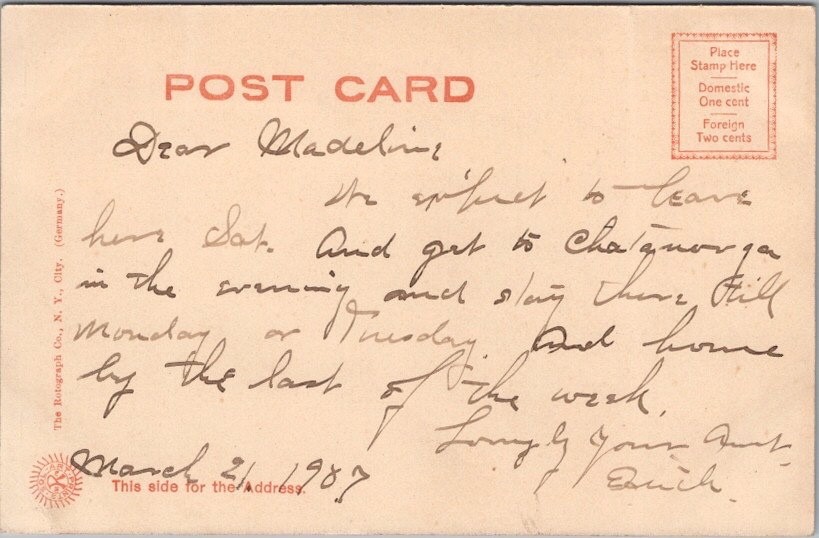 POST CARD
Place
Stamp Here
Domestic
One cent
Foreign
Two cents
Dear Madeline
We expect to leave
here Sat. And get to Chatanooga
in the evening and stay there till
Monday or Tuesday. And home
by the last of the week.
Lovingly Your Aunt
March 21, 1907
This side for the Address.
The Rotograph Co., N. Y., City. (Germany.)